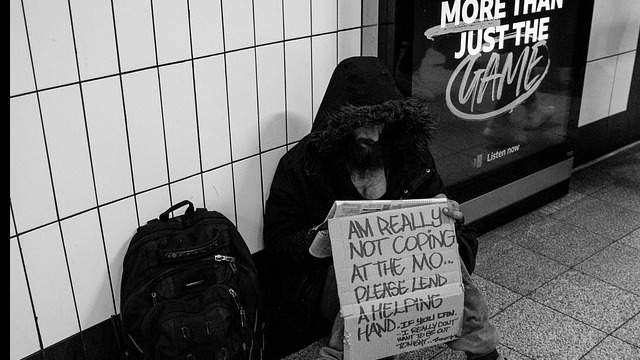 MORE THAN
JUST THE
GAME
Listen now
AM REALLY
NOT COPING
AT THE MO...
PLEASE LEND
A HELPING
HAND. - IF YOU CAN.
- I REALLY DON'T
WANT TO BE OUT
TONIGHT..